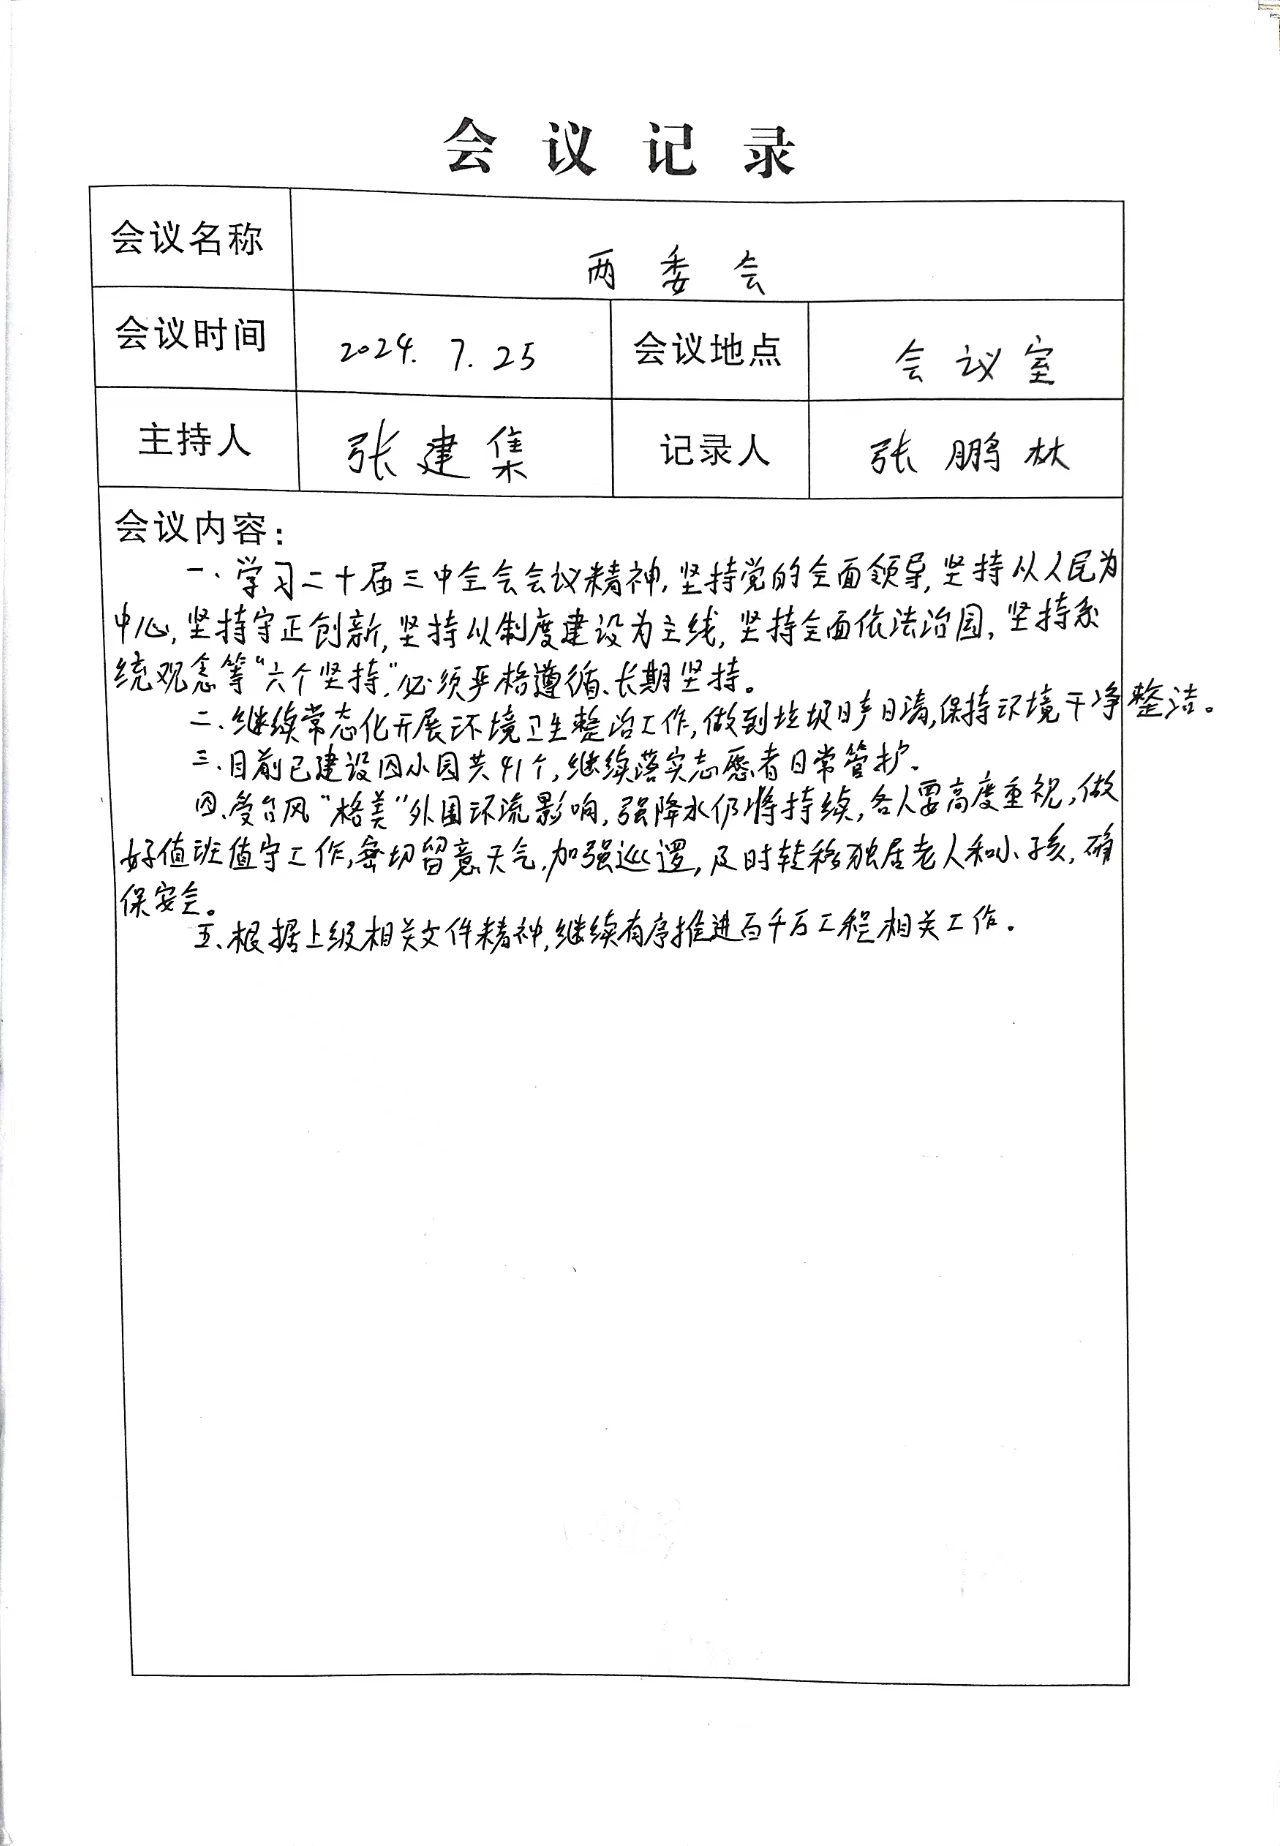 会议记录
会议名称 两委会
会议时间 2024.7.25 会议地点 会议室
主持人 张建集 记录人 张鹏林
会议内容：
一、学习二十届三中全会会议精神，坚持党的全面领导，坚持以人民为
中心，坚持守正创新，坚持以制度建设为主线，坚持全面依法治国，坚持系
统观念等“六个坚持”，必须严格遵循、长期坚持。
二、继续常态化开展环境卫生整治工作，做到垃圾日产日清，保持环境干净整洁。
三、目前已建设四小园共41个，继续落实志愿者日常管护。
四、受台风“格美”外围环流影响，强降水仍将持续，各人要高度重视，做
好值班值守工作，密切留意天气，加强巡逻，及时转移独居老人和小孩，确
保安全。
五、根据上级相关文件精神，继续有序推进百千万工程相关工作。